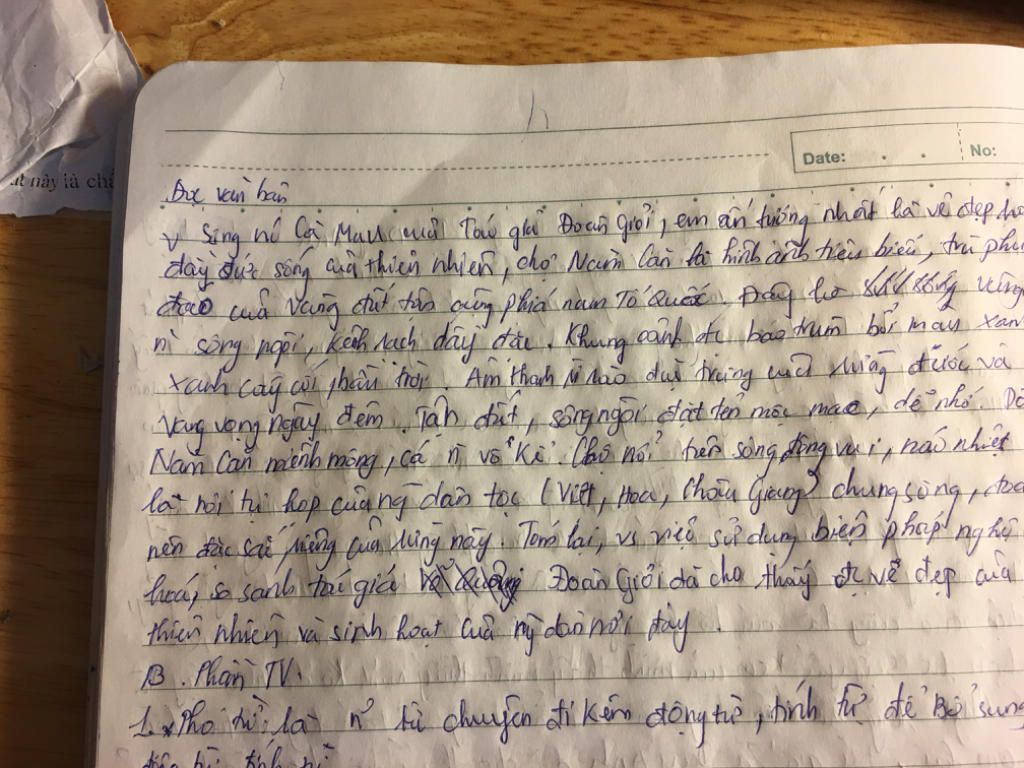 Date: . . No:
này là
Đọc văn bản
v Sông nc Cà Mau của Tác giả Đoàn Giỏi, em ấn tướng nhất là vẻ đẹp
đầy sức sống của thiên nhiên, chợ Năm Căn là hình ảnh tiêu biểu, trù phú
của vùng đất tận cùng phía nam Tổ Quốc. Đây là vùng
sông ngòi, kênh rạch dày đặc. Khung cảnh đc bao trùm bởi màu xanh
xanh cây cối, trời. Âm thanh rì rào của rừng đước và
vang vọng ngày đêm. Tên đất, sông ngòi đặt tên mộc mạc, dễ nhớ.
Năm Căn mênh mông, cá n vô kể. Chợ nổi trên sông đông vui, náo nhiệt
là nơi tụ họp của n dân tộc (Việt, Hoa, Châu Giang) chung sống,
nên đặc sắc riêng của vùng này. Tóm lại, vs việc sử dụng biện pháp
hoá, so sanh tác giả Đoàn Giỏi đã cho thấy đc vẻ đẹp của
thiên nhiên và sinh hoạt của ng dân nơi đây.
B. Phần TV.
1. Phó từ: là n từ chuyên đi kèm động từ, tính từ để Bổ sung